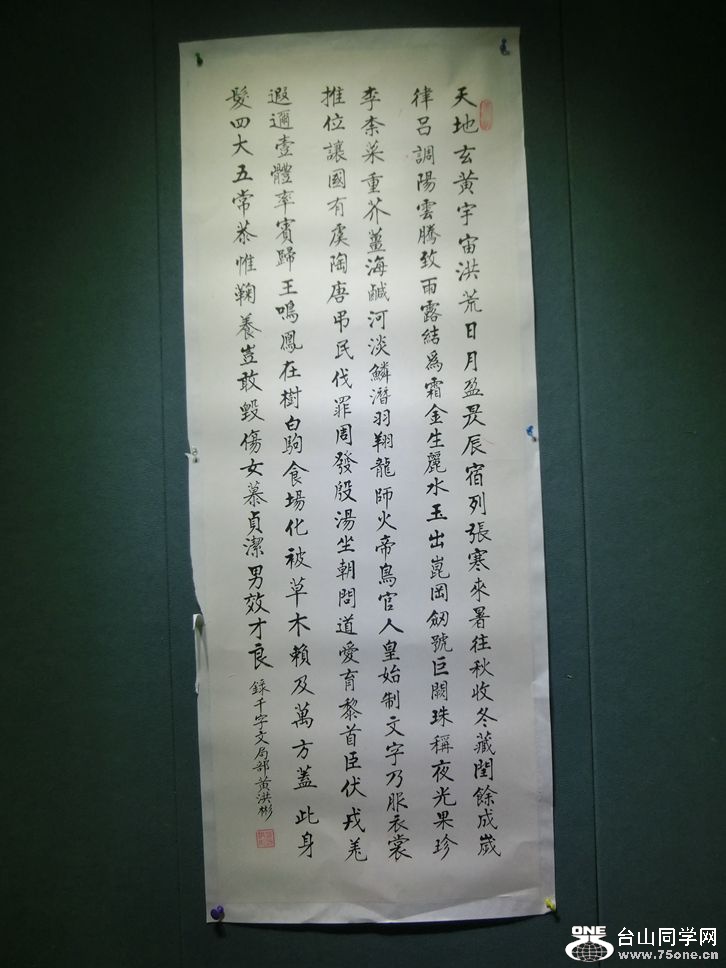 天地玄黃宇宙洪荒日月盈昃辰宿列張寒來暑往秋收冬藏閏餘成歲
律呂調陽雲騰致雨露結爲霜金生麗水玉出崑岡劒號巨闕珠稱夜光果珍
李柰菜重芥薑海鹹河淡鱗潛羽翔龍師火帝鳥官人皇始制文字乃服衣裳
推位讓國有虞陶唐弔民伐罪周發殷湯坐朝問道愛育黎首臣伏戎羌
遐邇壹體率賓歸王鳴鳳在樹白駒食場化被草木賴及萬方蓋此身
髮四大五常恭惟鞠養豈敢毀傷女慕貞潔男效才良
錄千字文局部黃洪彬
ONE
台山同学网
www.75one.cn